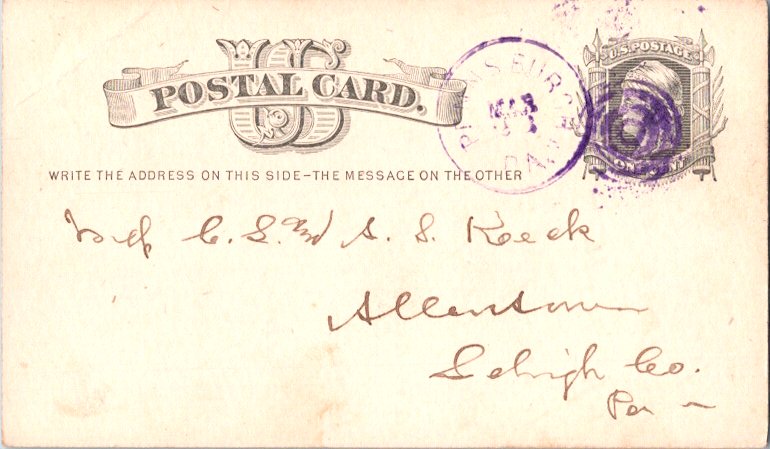 US
POSTAL CARD.
U.S. POSTAGE
ONE CENT
MAR
PA.
WRITE THE ADDRESS ON THIS SIDE–THE MESSAGE ON THE OTHER
C. S. and A. S. Koeck
Allentown
Lehigh Co.
Pa